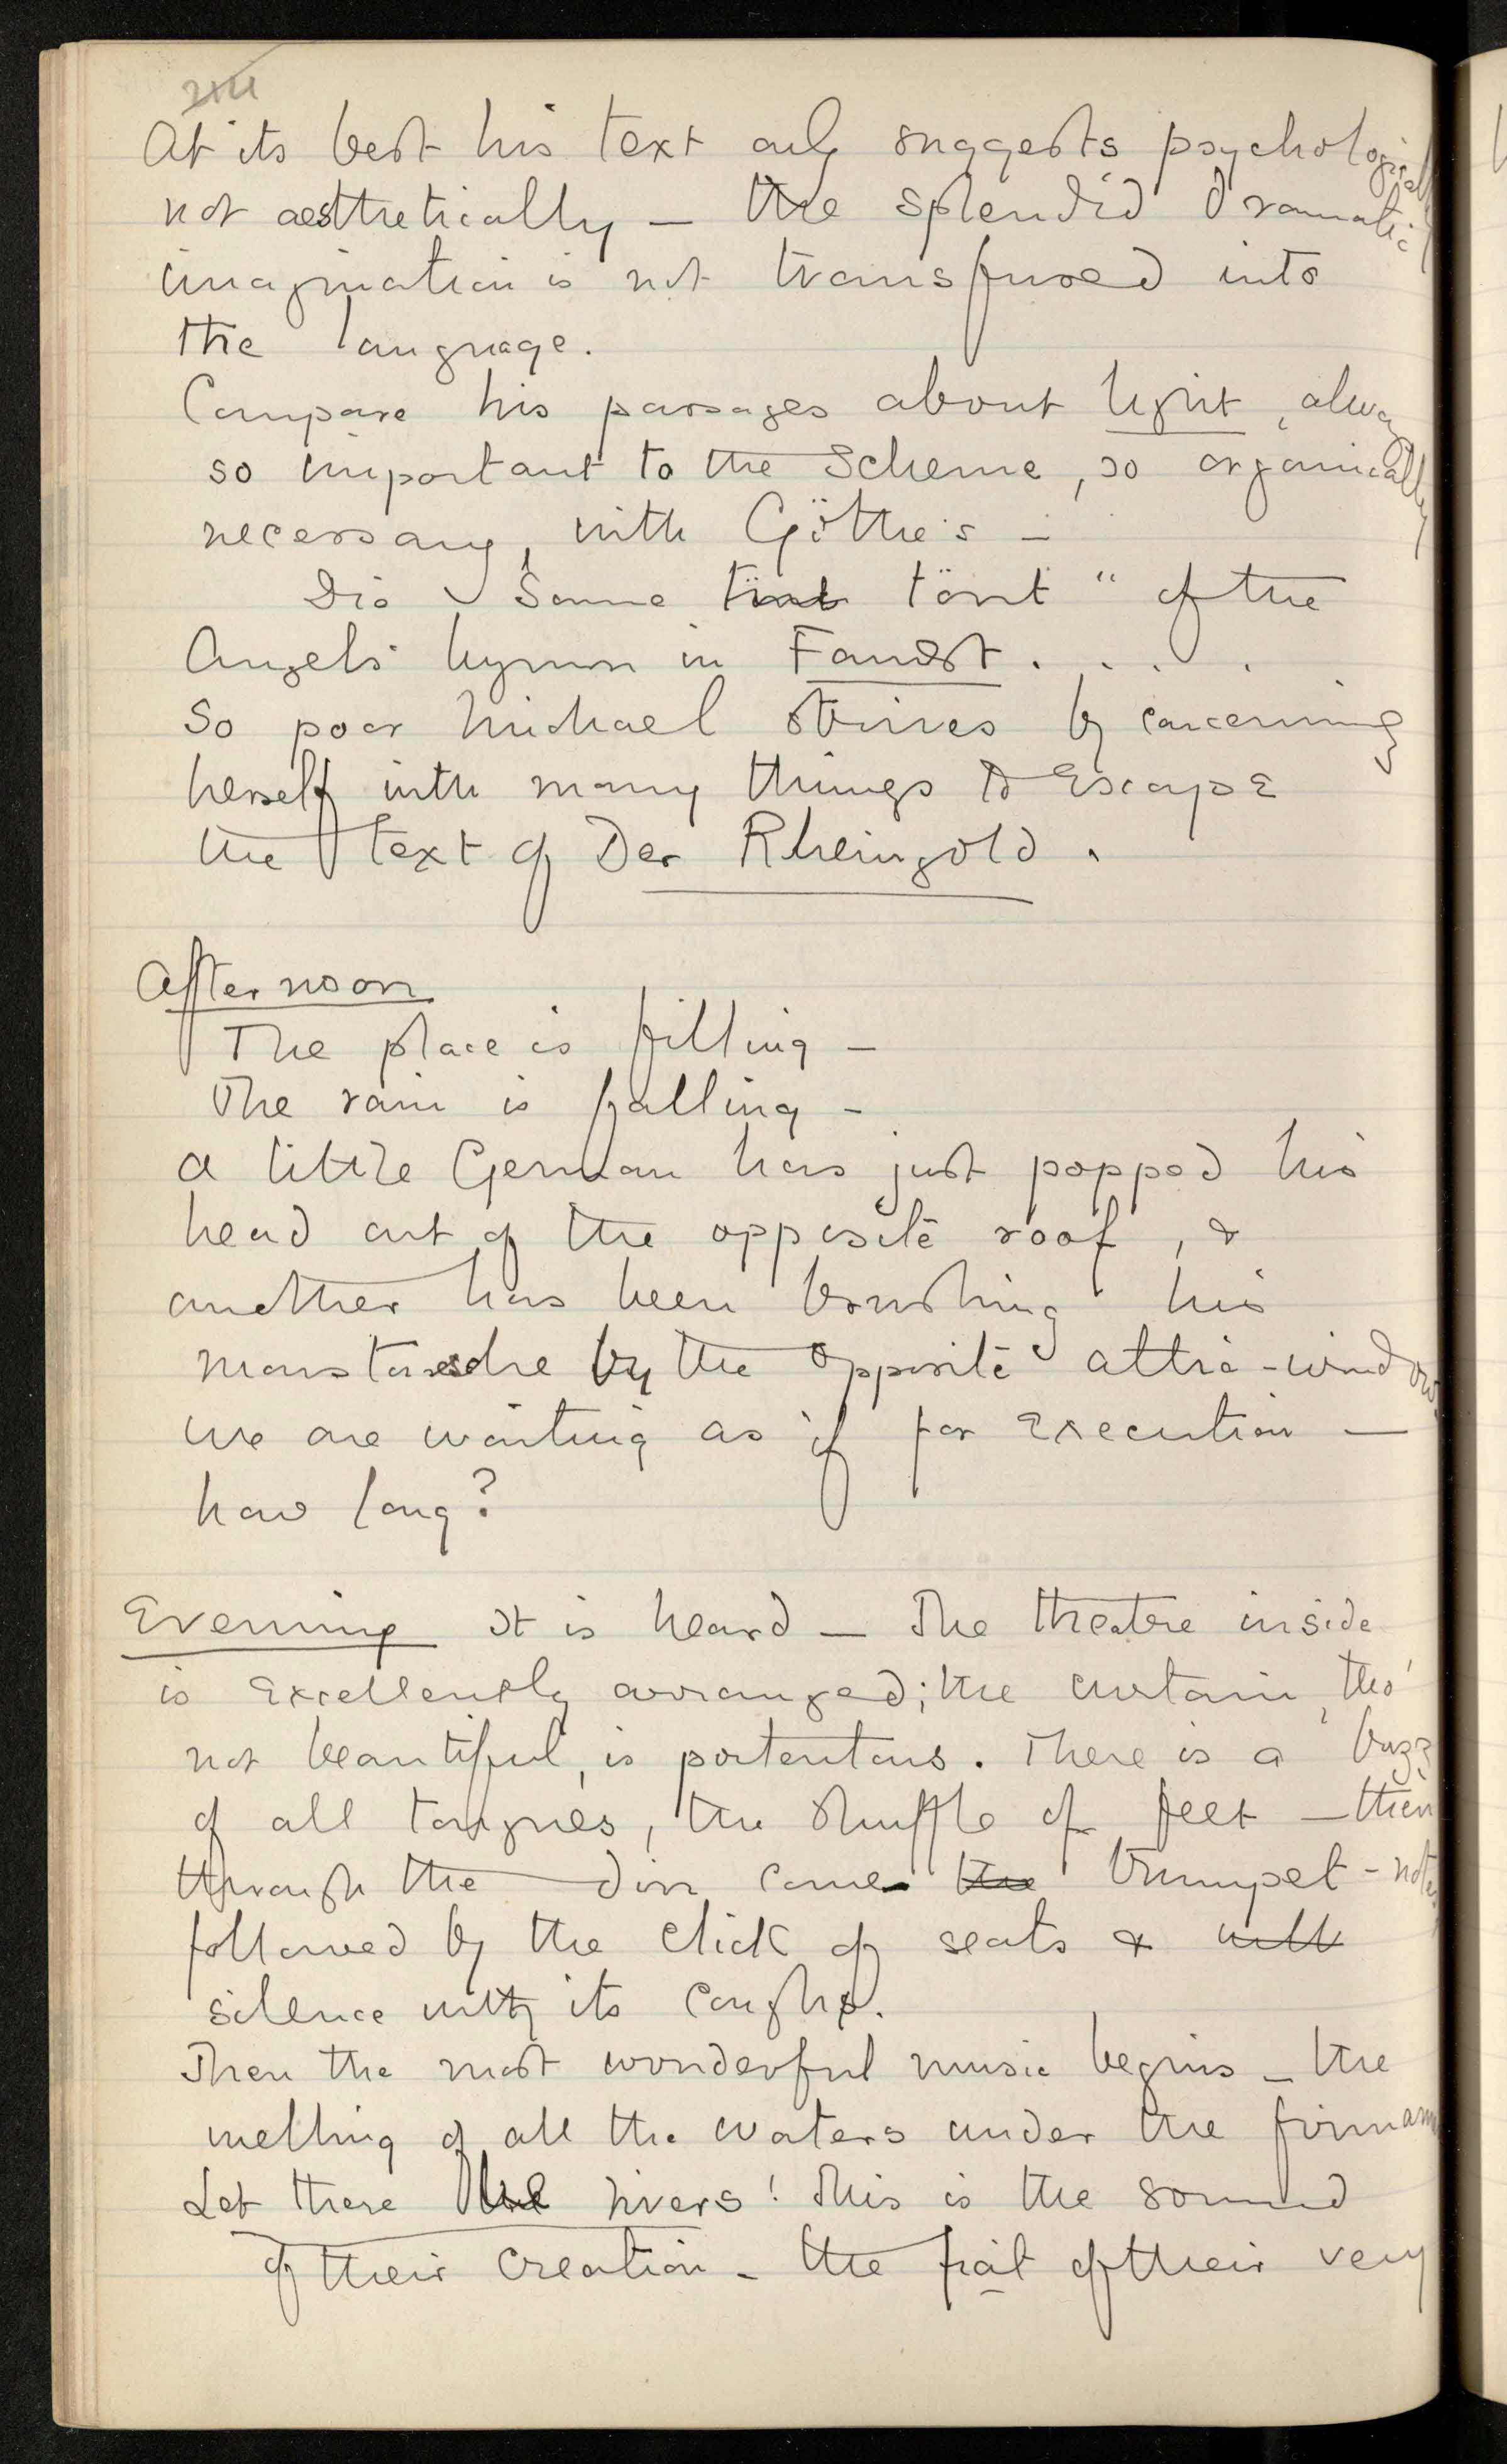 At its best his text only suggests psychologically
not aesthetically — the splendid dramatic
imagination is not transfused into
the language.
Compare his passages about light, always
so important to the scheme, so organically
necessary, with Göthe's —
Die Sonne tönt tönt" of the
Angels' hymn in Faust . . . .
So poor Michael strives by concerning
herself with many things to escape
the text of Der Rheingold.
Afternoon
The place is filling —
The rain is falling —
A little German has just popped his
head out of the opposite roof, &
another has been brushing his
moustache by the opposite attic-window.
We are waiting as if for execution —
how long?
Evening It is heard — The theatre inside
is excellently arranged; the curtain, tho'
not beautiful, is portentous. There is a buzz
of all tongues, the shuffle of feet — then
through the din come the trumpet-notes
followed by the click of seats & with
silence with its coughs.
Then the most wonderful music begins — the
welling of all the waters under the firmam
Let there be rivers! This is the sound
of their creation — the fiat of their very